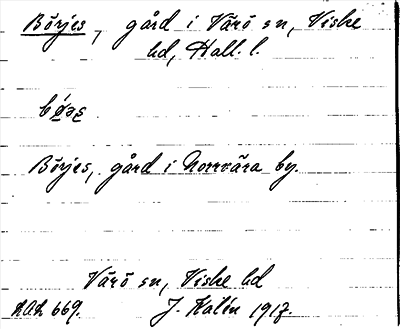 Börjes, gård i Värö sn, Viske
hd, Hall. l.
Börjes, gård i Norrvära by.
Värö sn, Viske hd
669. J. Kalén 1917.